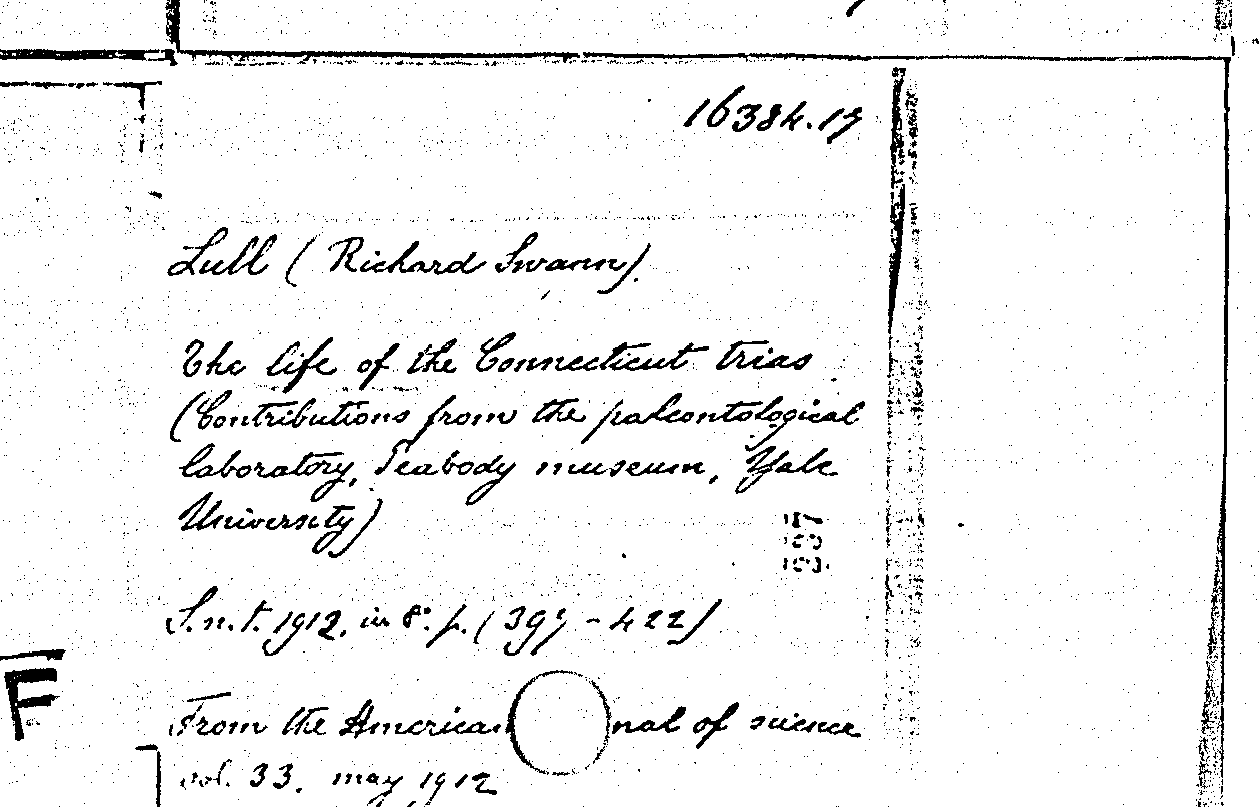 16384.17
Lull (Richard Swann).
The life of the Connecticut trias
(Contributions from the paleontological
laboratory, Peabody museum, Yale
University)
S.n.t. 1912. in 8°. p. (397-422)
From the American nal of science
vol. 33. may 1912
F